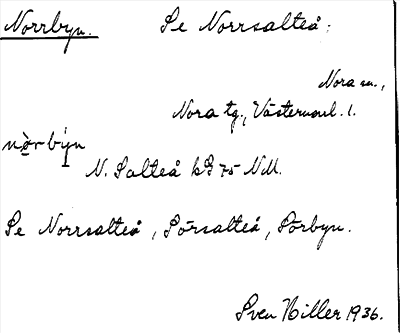 Norrbyn. Se Norrsalteå.
Nora sn.,
Nora tg., Västernorrl. l.
nòr býn
N. Salteå kG 75 NM.
Se Norrsalteå, Sörsalteå, Sörbyn.
Sven Hiller 1936.